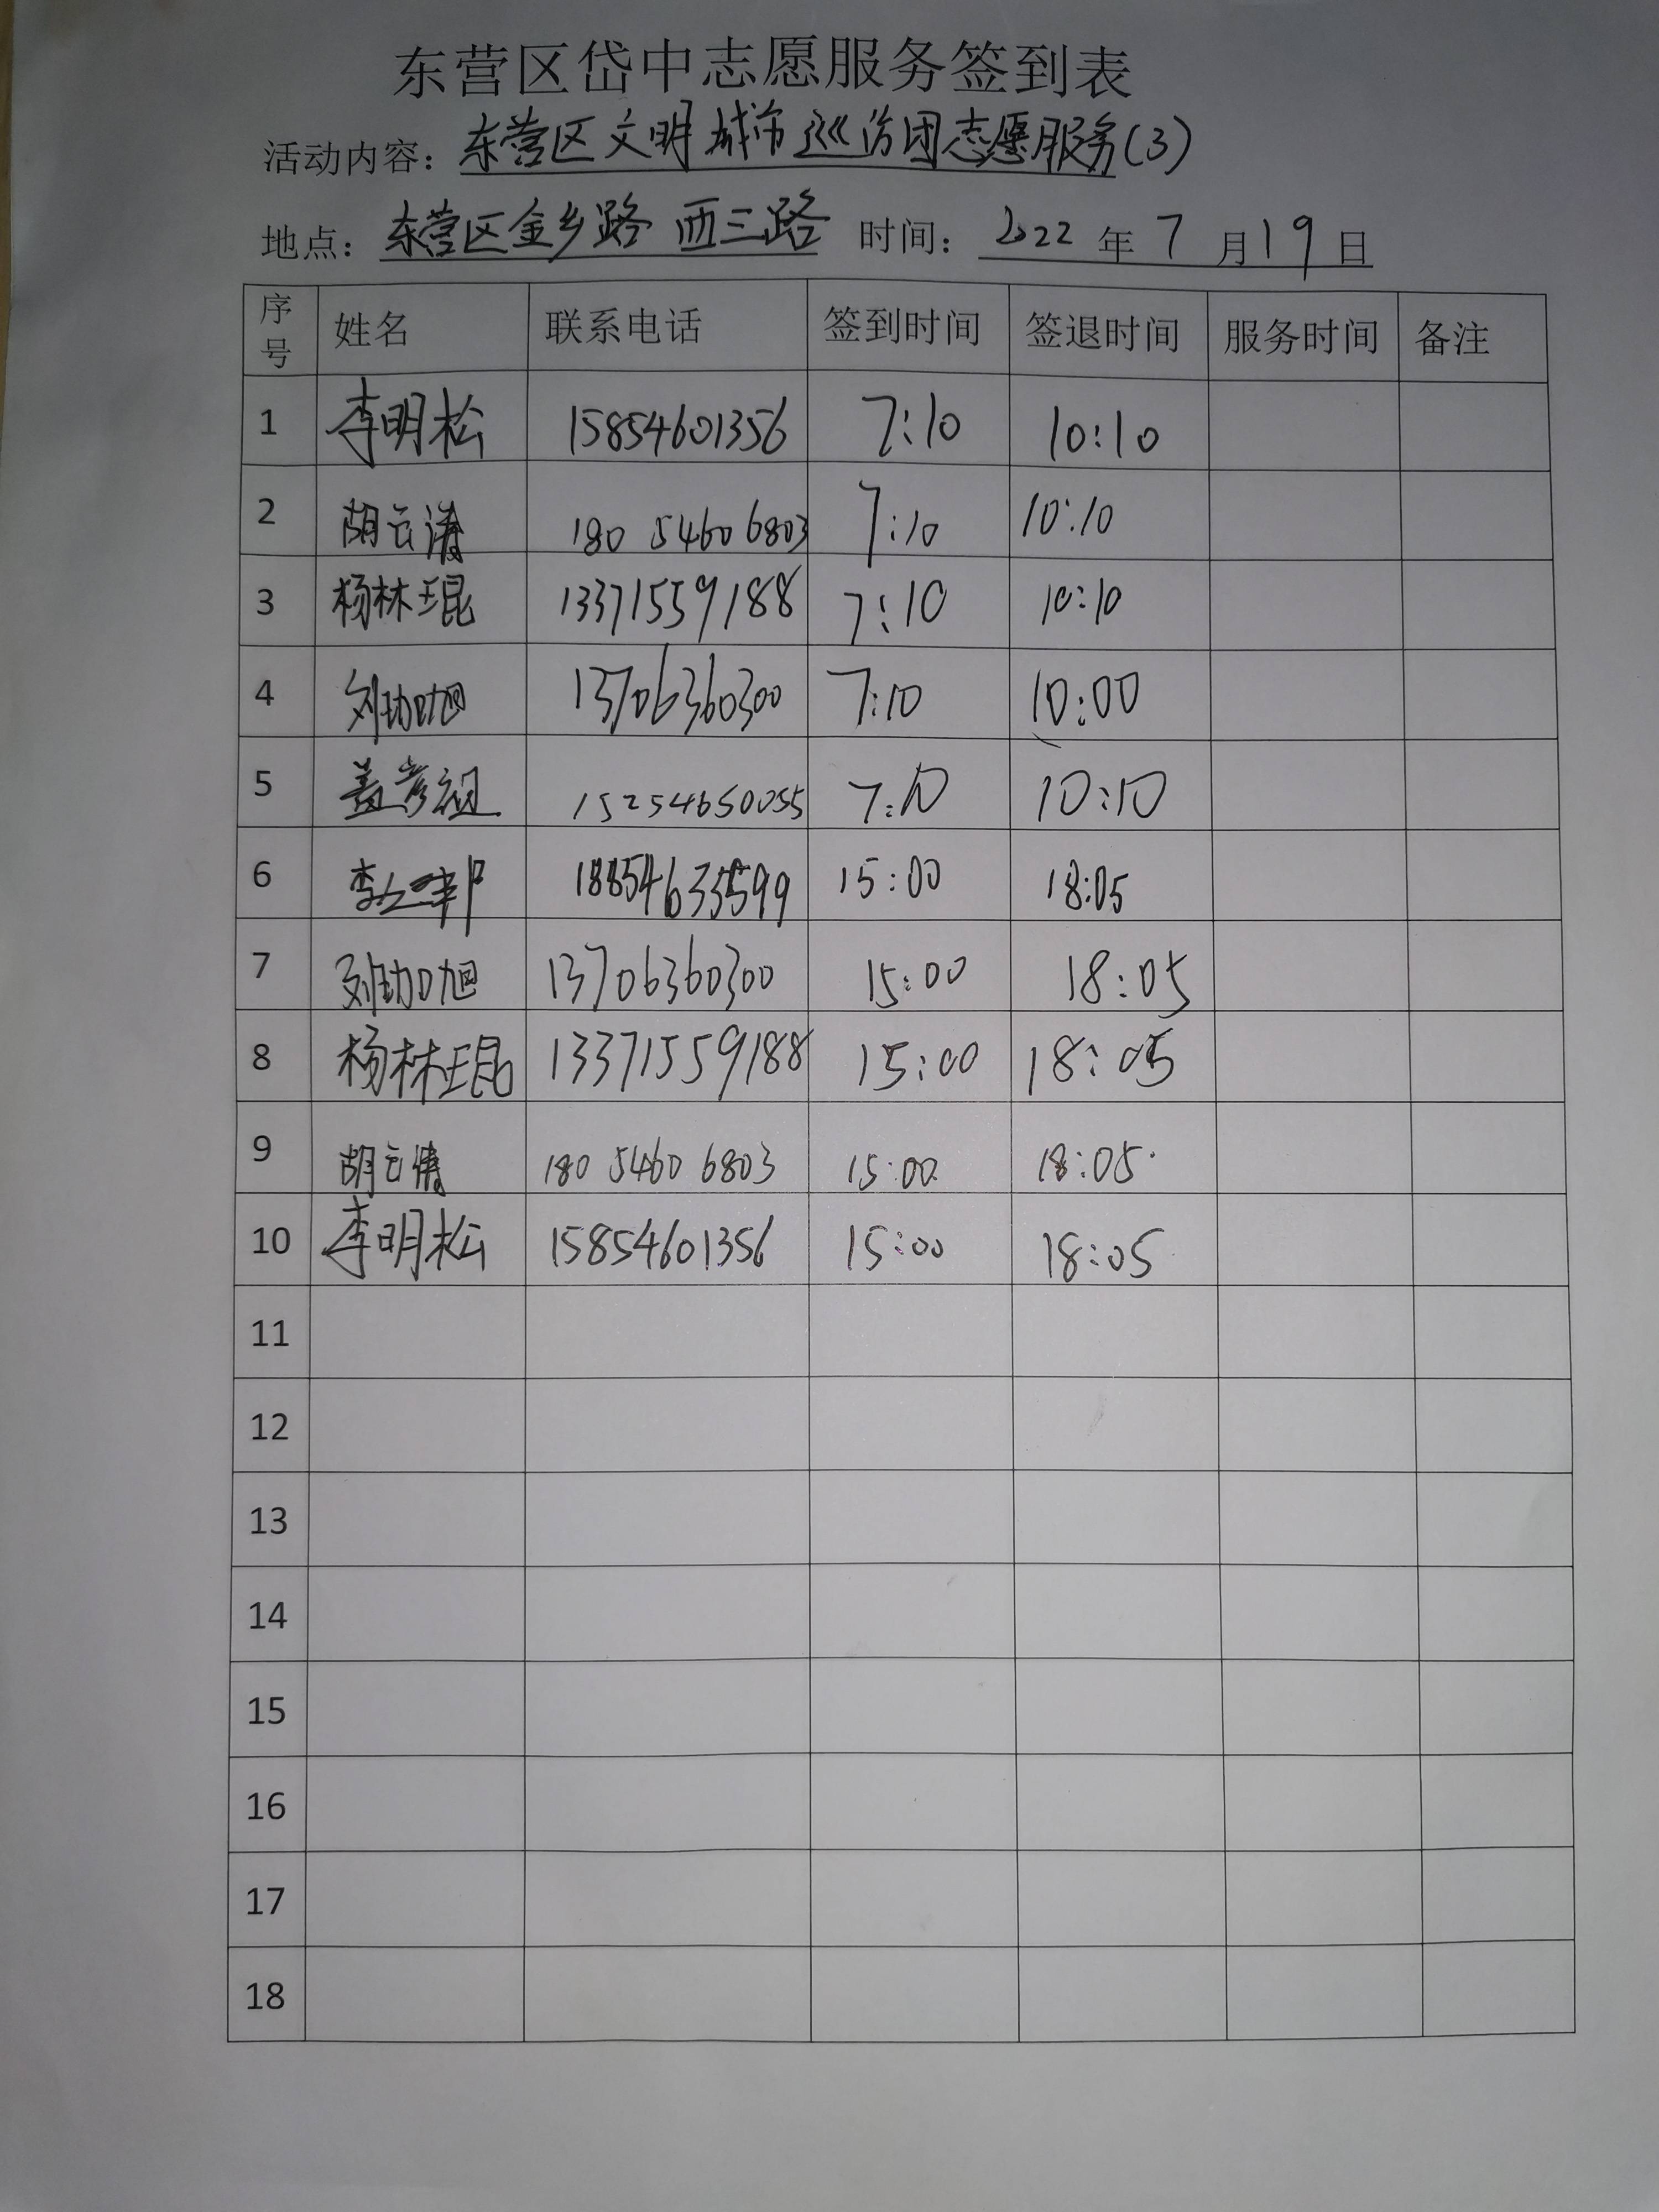 东营区岱中志愿服务签到表
活动内容：东营区文明城市巡访团志愿服务(3)
地点：东营区金乡路 西三路 时间：2022年7月19日
序号 姓名 联系电话 签到时间 签退时间 服务时间 备注
1 李明松 15854601356 7:10 10:10
2 胡云涛 180 5460 6803 7:10 10:10
3 杨林琨 13371559188 7:10 10:10
4 13706360300 7:10 10:00
5 盖彦祖 15254650055 7:10 10:10
6 15:00 18:05
7 13706360300 15:00 18:05
8 杨林琨 13371559188 15:00 18:05
9 胡云 180 5460 6803 15:00 18:05
10 李明松 15854601356 15:00 18:05
11
12
13
14
15
16
17
18